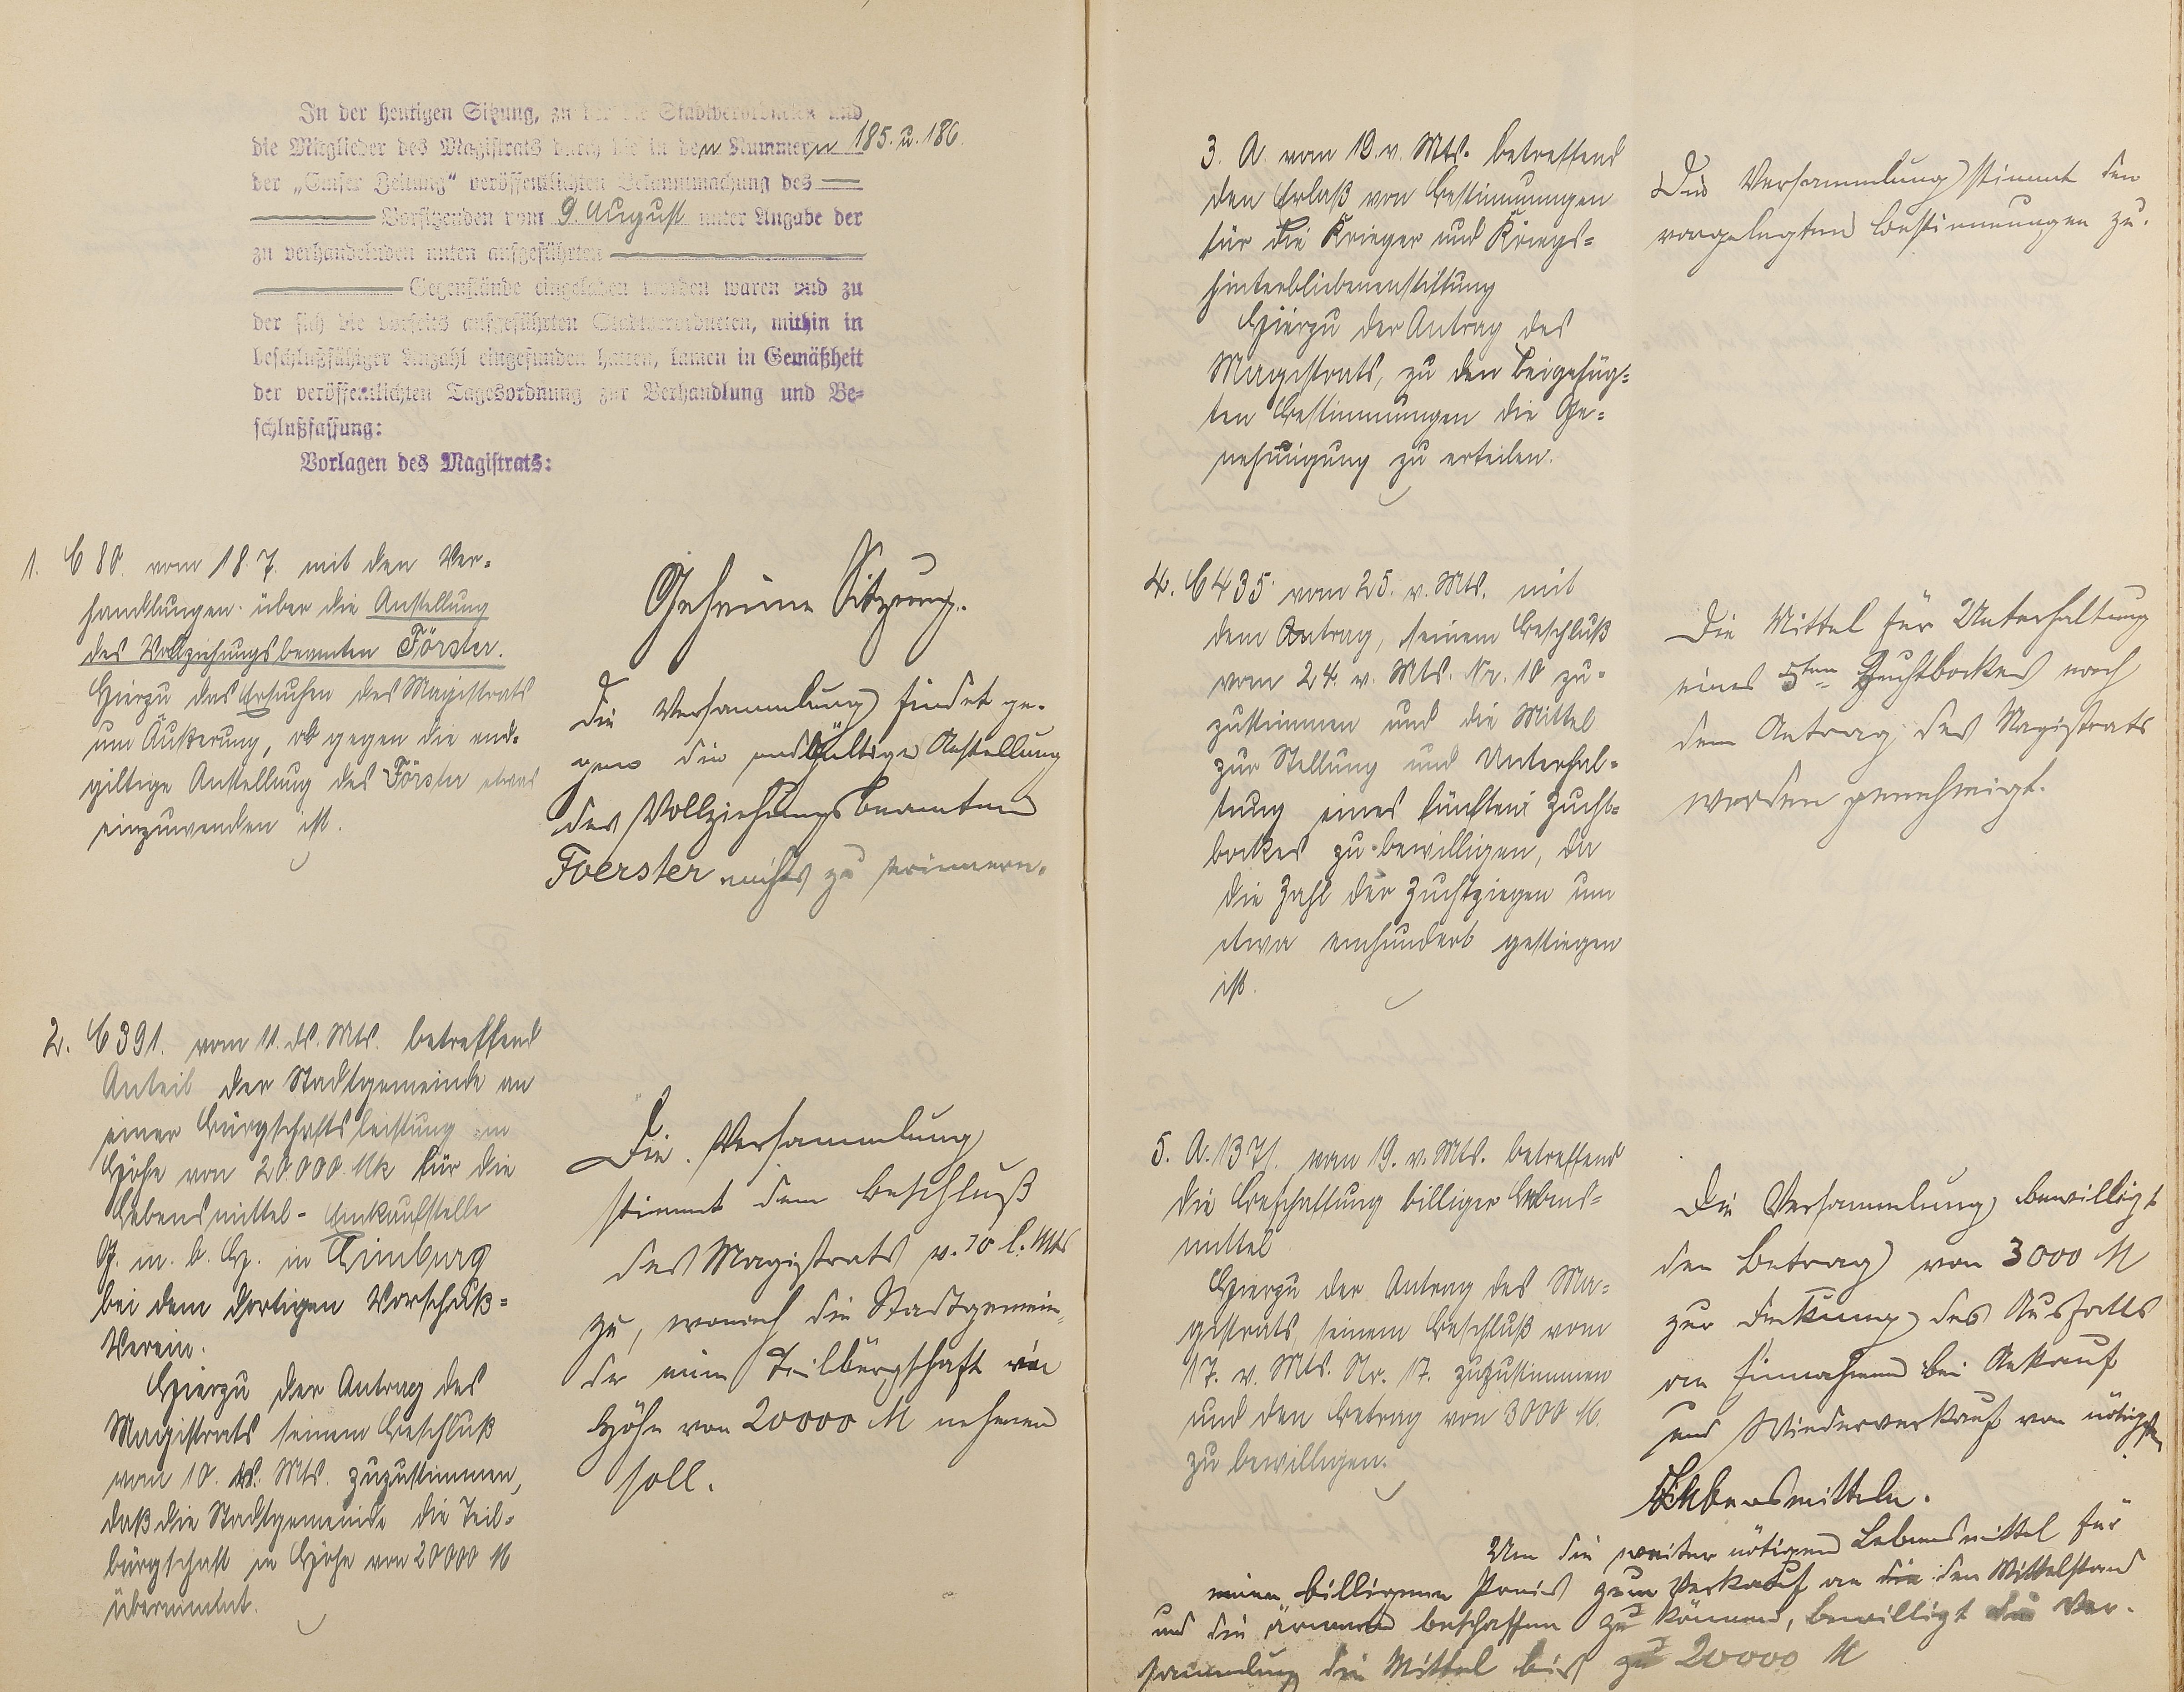 In der heutigen Sitzung, zu der die Stadtverordneten und
die Mitglieder des Magistrats durch die in den Nummern 185. u. 186.
der „Emser Zeitung“ veröffentlichten Bekanntmachung des
Vorsitzenden vom 9. August unter Angabe der
zu verhandelnden unten aufgeführten
Gegenstände eingeladen worden waren und zu
der sich die vorseits aufgeführten Stadtverordneten, mithin in
beschlußfähiger Anzahl eingefunden hatten, kamen in Gemäßheit
der veröffentlichten Tagesordnung zur Verhandlung und Be-
schlußfassung:
Vorlagen des Magistrats:
1. C 80. vom 18.7. mit den Ver-
handlungen über die Anstellung
des Vollziehungsbeamten Förster.
Hierzu das Ersuchen des Magistrats
um Äußerung, ob gegen die end-
giltige Anstellung des Förster etwas
einzuwenden ist.
Geheime Sitzung.
Die Versammlung findet ge-
gen die endgültige Anstellung
des Vollziehungsbeamten
Foerster nichts zu erinnern.
2. C 391. vom 11. ds. Mts. betreffend
Anteil der Stadtgemeinde an
einer Bürgschaftsleistung in
Höhe von 20.000 Mk für die
Lebensmittel-Einkaufstelle
G. m. b. H. in Limburg
bei dem dortigen Vorschuß-
Verein.
Hierzu der Antrag des
Magistrats seinem Beschluß
vom 10. ds. Mts. zuzustimmen,
daß die Stadtgemeinde die Teil-
bürgschaft in Höhe von 20000 M
übernimmt.
Die Versammlung
stimmt dem Beschluß
des Magistrats v. 10 l. Mts
zu, wonach die Stadtgemein-
de eine Teilbürgschaft in
Höhe von 20000 M nehmen
soll.
3. A. vom 19. v. Mts. betreffend
den Erlaß von Bestimmungen
für die Krieger und Kriegs-
hinterbliebenenstiftung
Hierzu der Antrag des
Magistrats, zu den beigefüg-
ten Bestimmungen die Ge-
nehmigung zu erteilen.
Die Versammlung stimmt den
vorgelegten Bestimmungen zu.
4. C 435 vom 25. v. Mts. mit
dem Antrag, seinem Beschluß
vom 24. v. Mts. Nr. 10 zu-
zustimmen und die Mittel
zur Stellung und Unterhal-
tung eines fünften Zucht-
bockes zu bewilligen, da
die Zahl der Zuchtziegen um
etwa einhundert gestiegen
ist.
Die Mittel für Unterhaltung
eines 5ten Zuchtbockes nach
dem Antrag des Magistrats
werden genehmigt.
5. A. 1371. vom 19. v. Mts. betreffend
die Beschaffung billiger Lebens-
mittel
Hierzu der Antrag des Ma-
gistrats, seinem Beschluß vom
17. v. Mts. Nr. 17. zuzustimmen
und den Betrag von 3000 M.
zu bewilligen.
Die Versammlung bewilligt
den Betrag von 3000 M
zur Deckung des Ausfalls
an Einnahmen bei Ankauf
und Wiederverkauf von nötigen
Lebensmitteln.
Um die weiter nötigen Lebensmittel für
einen billigeren Preis zum Verkauf an die den Mittelstand
und die ärmeren beschaffen zu können, bewilligt die Ver-
sammlung die Mittel bis zu 20000 M